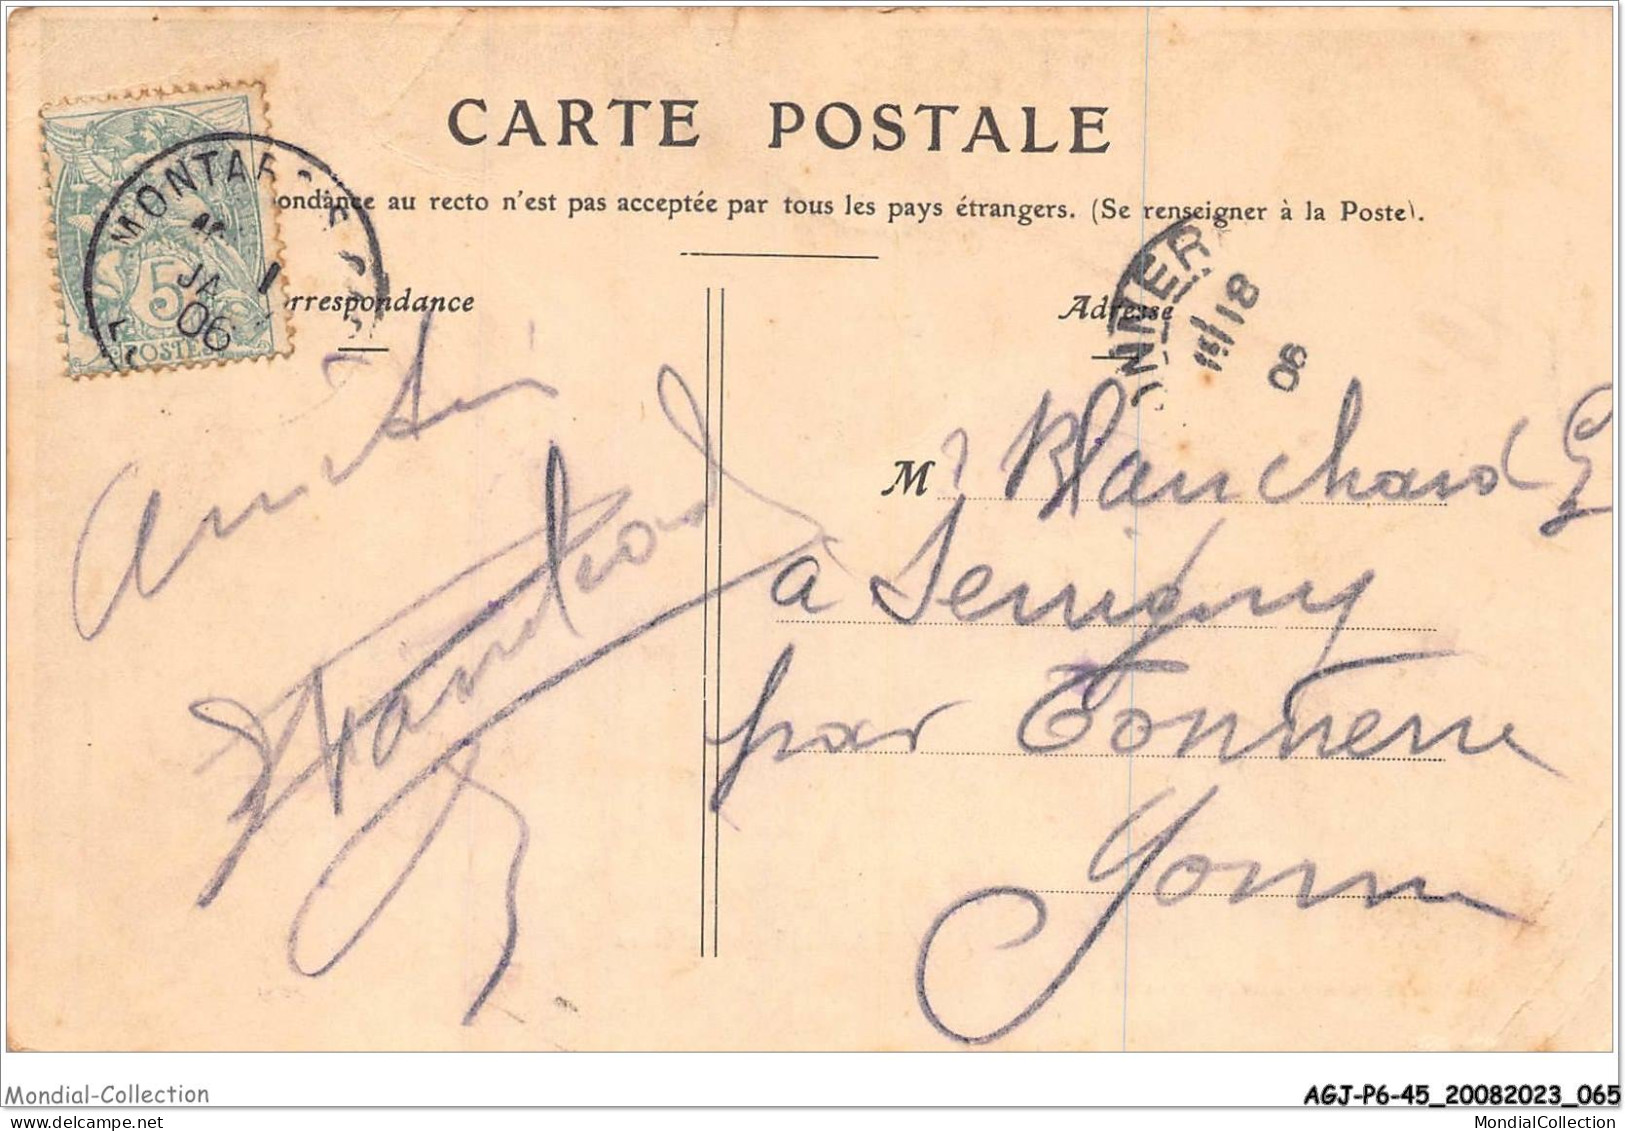 CARTE POSTALE
ondance au recto n'est pas acceptée par tous les pays étrangers. (Se renseigner à la Poste).
MONTARGIS
JA
06
5
POSTES
rrespondance
Adresse
18
06
Amitié
M r Blanchard G
à Sennigny
par Tonnerre
Yonne
Mondial-Collection
AGJ-P6-45_20082023_065
MondialCollection